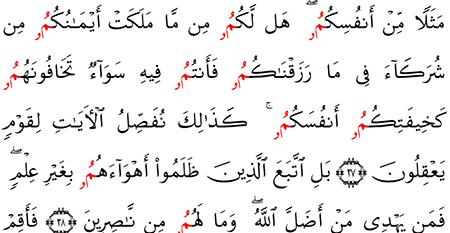 مَثَلًا مِّنْ أَنفُسِكُمُۥ ۖ هَل لَّكُمُۥ مِن مَّا مَلَكَتْ أَيْمَـٰنُكُمُۥ مِن
شُرَكَآءَ فِى مَا رَزَقْنَـٰكُمُۥ فَأَنتُمُۥ فِيهِ سَوَآءٌ تَخَافُونَهُمُۥ
كَخِيفَتِكُمُۥ أَنفُسَكُمُۥ ۚ كَذَٰلِكَ نُفَصِّلُ ٱلْأَيَـٰتِ لِقَوْمٍ
يَعْقِلُونَ ۝٢٧ بَلِ ٱتَّبَعَ ٱلَّذِينَ ظَلَمُوٓا۟ أَهْوَآءَهُمُۥ بِغَيْرِ عِلْمٍ ۖ
فَمَن يَهْدِى مَنْ أَضَلَّ ٱللَّهُ ۖ وَمَا لَهُمُۥ مِن نَّـٰصِرِينَ ۝٢٨ فَأَقِمْ